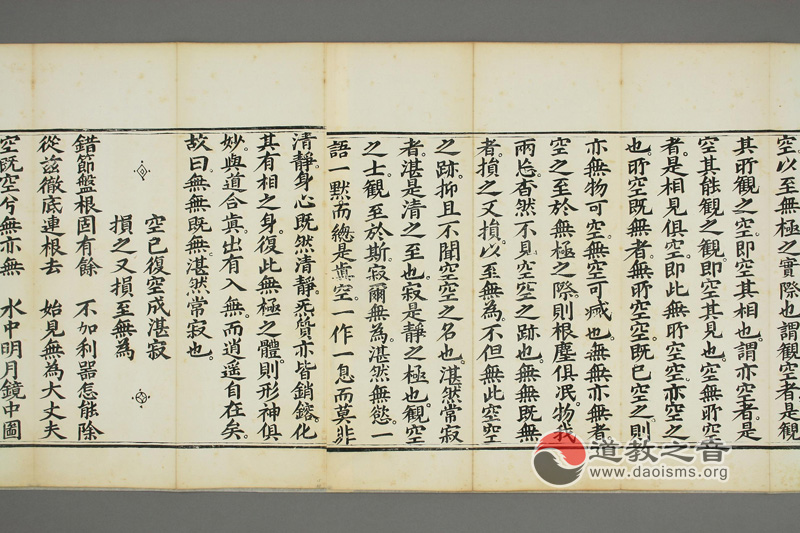 空以至無極之實際也謂觀空者是觀
其所觀之空即空其相也謂亦空者是
空其能觀之觀即空其見也空無所空
者是相見俱空即此無所空空亦空之
也所空既無者無所空空既已空之則
亦無物可空無空可滅也無無亦無者
空之至於無極之際則根塵俱泯物我
兩忘杳然不見空空之跡也無無既無
者損之又損以至無為不但無此空空
之跡抑且不聞空空之名也湛然常寂
者湛是清之至也寂是靜之極也觀空
之士觀至於斯寂爾無為湛然無慾一
語一默而總是真空一作一息而莫非
清靜身心既然清靜炁質亦皆銷鎔化
其有相之身復此無極之體則形神俱
妙與道合真出有入無而逍遙自在矣
故曰無無既無湛然常寂也
空已復空成湛寂
損之又損至無為
錯節盤根固有餘 不加利器怎能除
從茲徹底連根去 始見無為大丈夫
空既空兮無亦無 水中明月鏡中圖
道教之音
www.daoisms.org